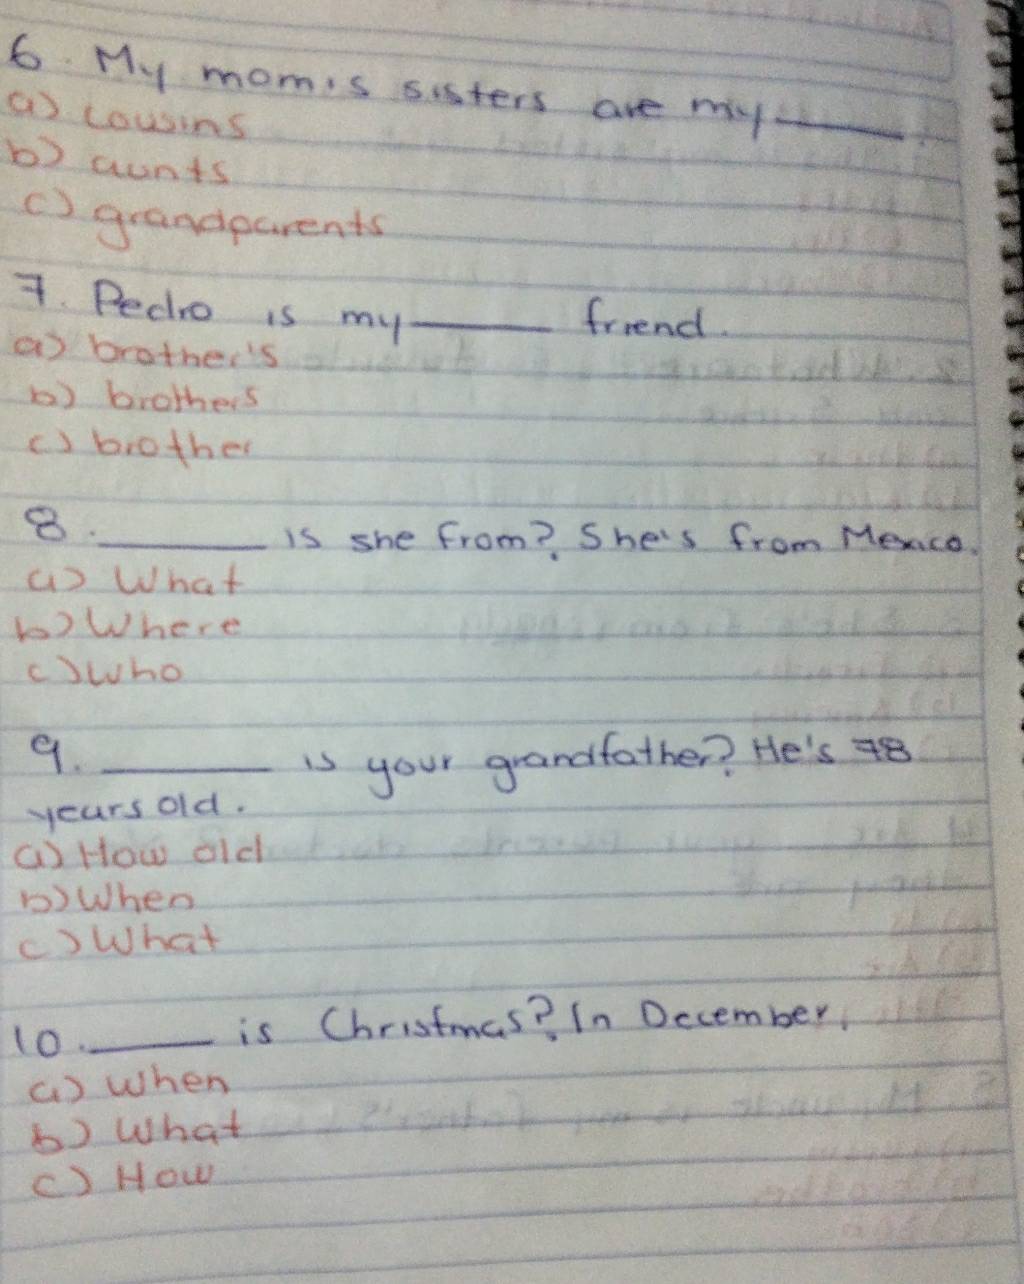 6. My mom's sisters are my ______.
a) cousins
b) aunts
c) grandparents
7. Pedro is my ______ friend.
a) brother's
b) brothers
c) brother
8. ______ is she from? She's from Mexico.
a) What
b) Where
c) Who
9. ______ is your grandfather? He's 78
years old.
a) How old
b) When
c) What
10. ______ is Christmas? In December.
a) When
b) What
c) How